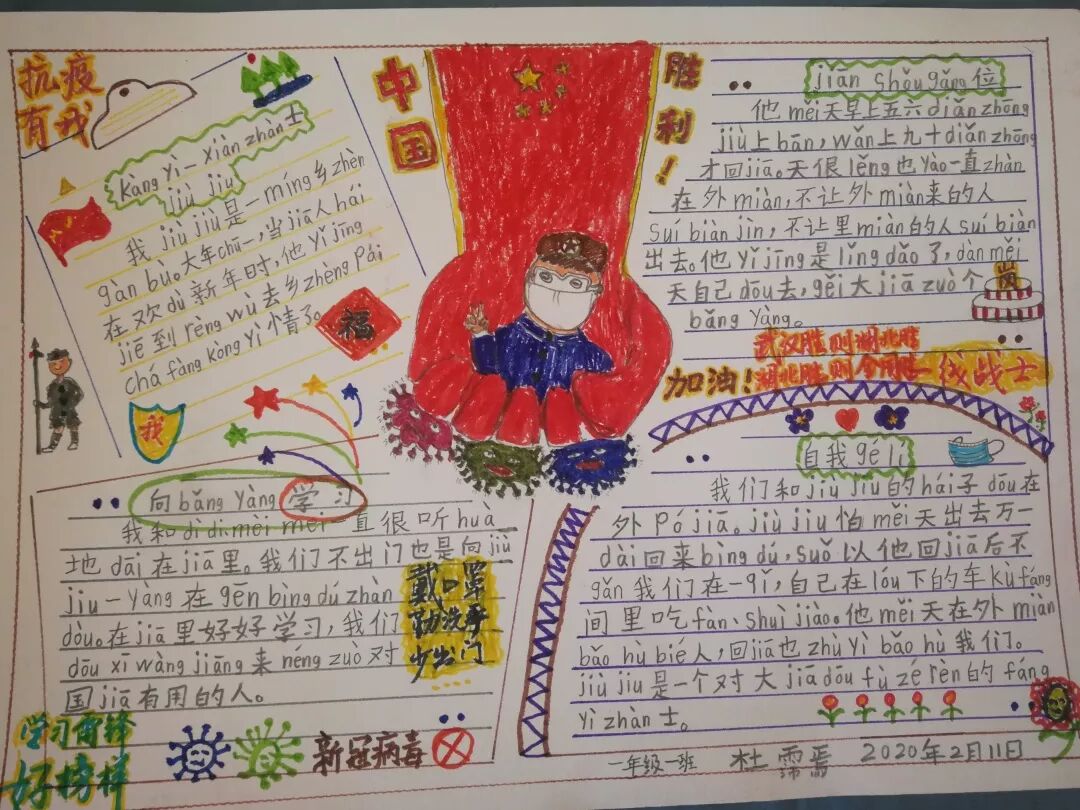 抗疫
有我
kàng yì一xiàn zhàn士
jiù jiu
我 jiù jiù是一míng乡zhèn
gàn bù。大年chū一,当jiā人hái
在欢dù新年时,他yǐjīng
jiē到rèng wù去乡zhèng pái
chá fáng kòng yì情了。
福
我
中
国
胜
利!
jiān shǒu gǎng位
他měi天早上五六diǎn zhōng
jiù上bān,wǎn上九十diǎn zhōng
才回jiā。天很lěng也yào一直zhàn
在外miàn,不让外miàn来的人
suí biàn jìn,不让里miàn的人suí biàn
出去。他yǐ jīng是lǐng dǎo了,dàn měi
天自己dōu去,gěi大jiā zuò个
bǎng yàng。
岗
武汉胜则湖北胜
湖北胜则全国胜
加油!一线战士
向bǎng yàng学习
我和dì di mèi mei一直很听huà
地dāi在jiā里。我们不出门也是向jiù
jiu一yàng在gēn bìng dú zhàn
dòu。在jiā里好好学习,我们
dōu xī wàng jiāng来néng zuò对
国jiā有用的人。
戴口罩
勤洗手
少出门
学习雷锋
好榜样
新冠病毒
自我gé lí
我们和jiù jiu的hái子dōu在
外pó jiā。jiù jiu怕měi天出去万一
dài回来bìng dú,suǒ以他回jiā后不
gǎn我们在一qǐ,自己在lóu下的车kù fáng
间里吃fàn、shuì jiào。他měi天在外miàn
bǎo hù bié人,回jiā也zhù yì bǎo hù我们。
jiù jiu是一个对大jiā dōu fù zé rèn的fáng
yì zhàn士。
一年级一班 杜霈焉 2020年2月11日